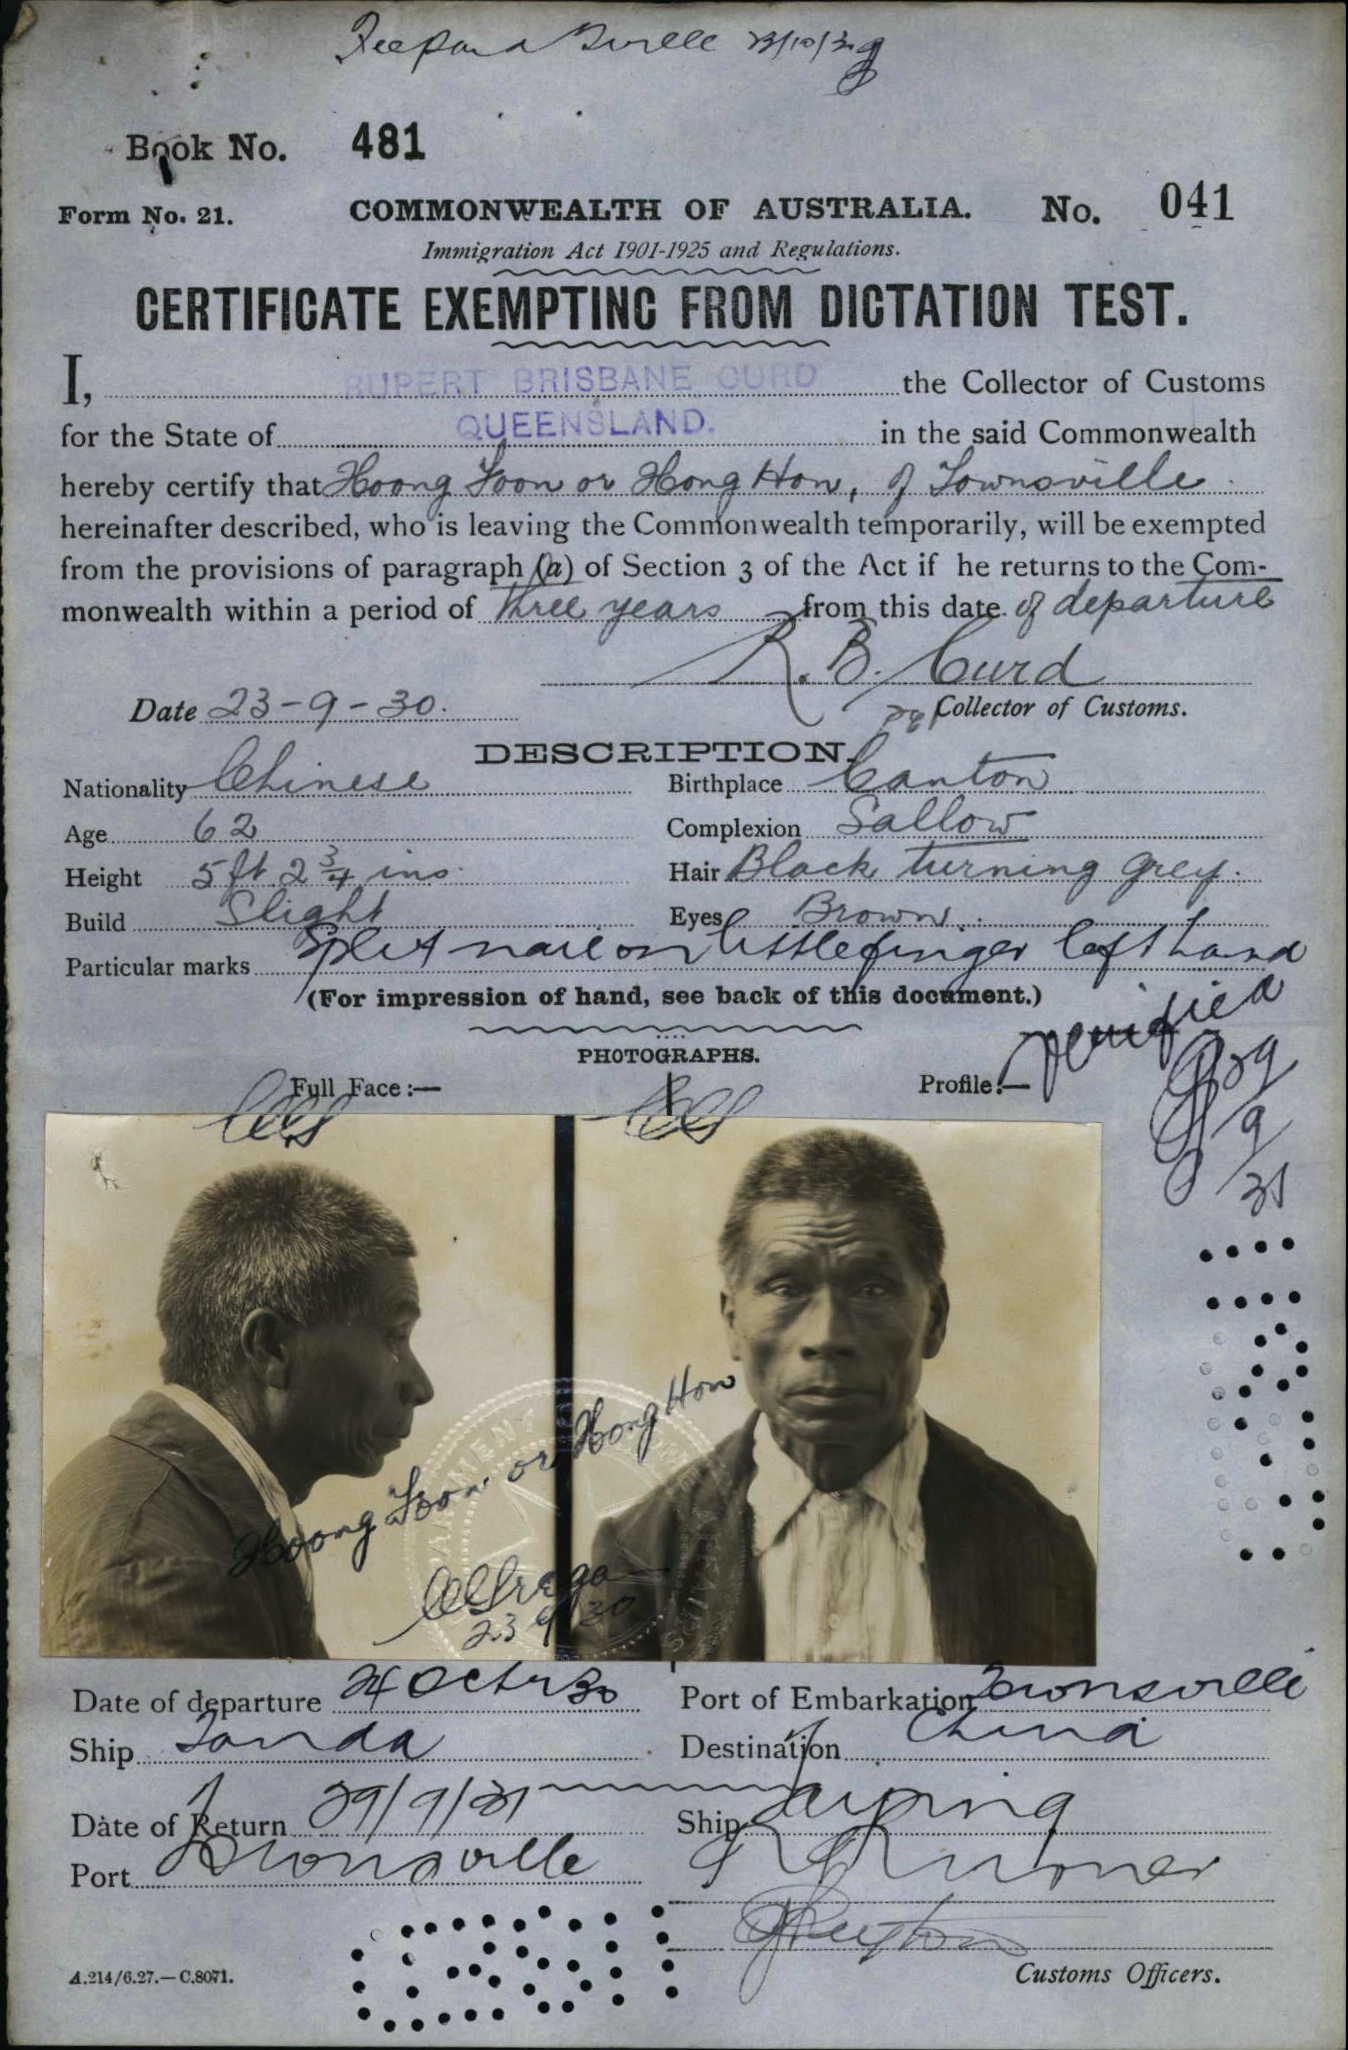 23/10/30
Book No. 481
Form No. 21. COMMONWEALTH OF AUSTRALIA. No. 041
Immigration Act 1901-1925 and Regulations.
CERTIFICATE EXEMPTING FROM DICTATION TEST.
I, RUPERT BRISBANE CURD the Collector of Customs
for the State of QUEENSLAND. in the said Commonwealth
hereby certify that Hoong Foon or Hong Hon, of Townsville
hereinafter described, who is leaving the Commonwealth temporarily, will be exempted
from the provisions of paragraph (a) of Section 3 of the Act if he returns to the Com-
monwealth within a period of three years from this date of departure
R. B. Curd
Date 23-9-30. Collector of Customs.
DESCRIPTION.
Nationality Chinese Birthplace Canton
Age 62 Complexion Sallow
Height 5 ft 2 3/4 ins. Hair Black turning grey.
Build Slight Eyes Brown.
Particular marks Split nail on little finger left hand
(For impression of hand, see back of this document.)
verified
PHOTOGRAPHS.
Full Face:— Profile:—
29/9/31
Hoong Foon or Hong Hon
23 9 30
Date of departure 24 Octr 30 Port of Embarkation Townsville
Ship Tanda Destination China
Date of Return 29/9/31 Ship Taiping
Port Townsville
Customs Officers.
A.214/6.27.—C.8071.